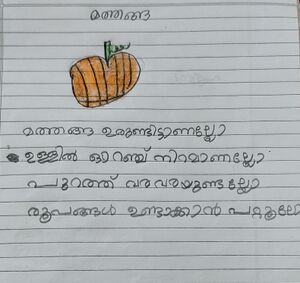 മത്തങ്ങ
മത്തങ്ങ ഉരുണ്ടിട്ടാണല്ലോ
ഉള്ളിൽ ഓറഞ്ച് നിറമാണല്ലോ
പുറത്ത് വരവരയുണ്ടല്ലോ
രൂപങ്ങൾ ഉണ്ടാക്കാൻ പറ്റൂലോ